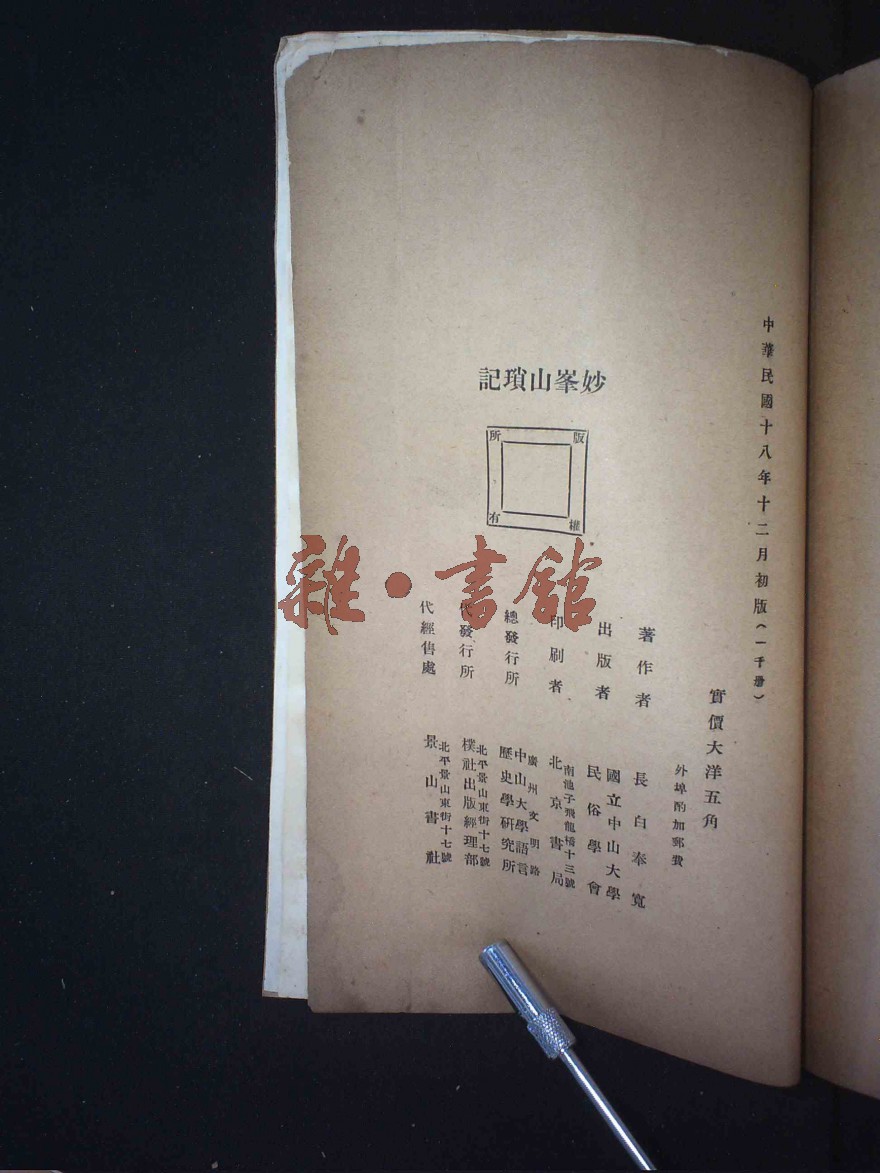 中華民國十八年十二月初版（一千册）
實價大洋五角
外埠酌加郵費
妙峯山瑣記
版權所有
著作者 長白奉寬
出版者 國立中山大學
民俗學會
印刷者 南池子飛龍橋十三號
北京書局
總發行所 廣州文明路
中山大學語言
歷史學研究所
代發行所 北平景山東街十七號
樸社出版經理部
代經售處 北平景山東街十七號
景山書社
雜·書館